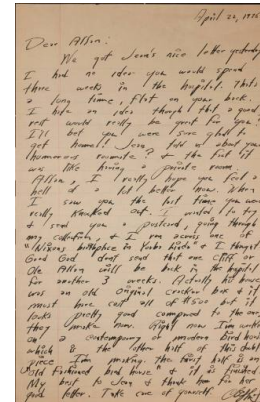 April 22, 1976
Dear Alfson:
We got Jean's nice letter yesterday
I had no idea you would spend
three weeks in the hospital. That's
a long time, flat on your back.
I had an idea though that a good
rest would really be great for you!
I'll bet you were sure glad to
get home! Jean told us about your
humorous roommate? & the fact it
was like having a private room
Alfson, I really hope you feel a
hell of a lot better now. When
I saw you the last time you were
really knacked out. I wanted to try
& send you a postcard, going through
my collection, & I came across one of
"Nixons birthplace in Yorba Linda" & I thought
Good God dont send that one Cliff or
Ole Alfson will be back in the hospital
for another 3 weeks. Actually his house
was an old original cracker box & it
must have cost all of $500 but it
looks pretty good compared to the ones
they make now. Right now I'm working
on a contemporary or modern Bird house
which is the other half of this
piece I'm making. The first half is an
"Old Fashioned bird house" & it is finished
My best to Jean & thank her for her
good letter. Take care of yourself.